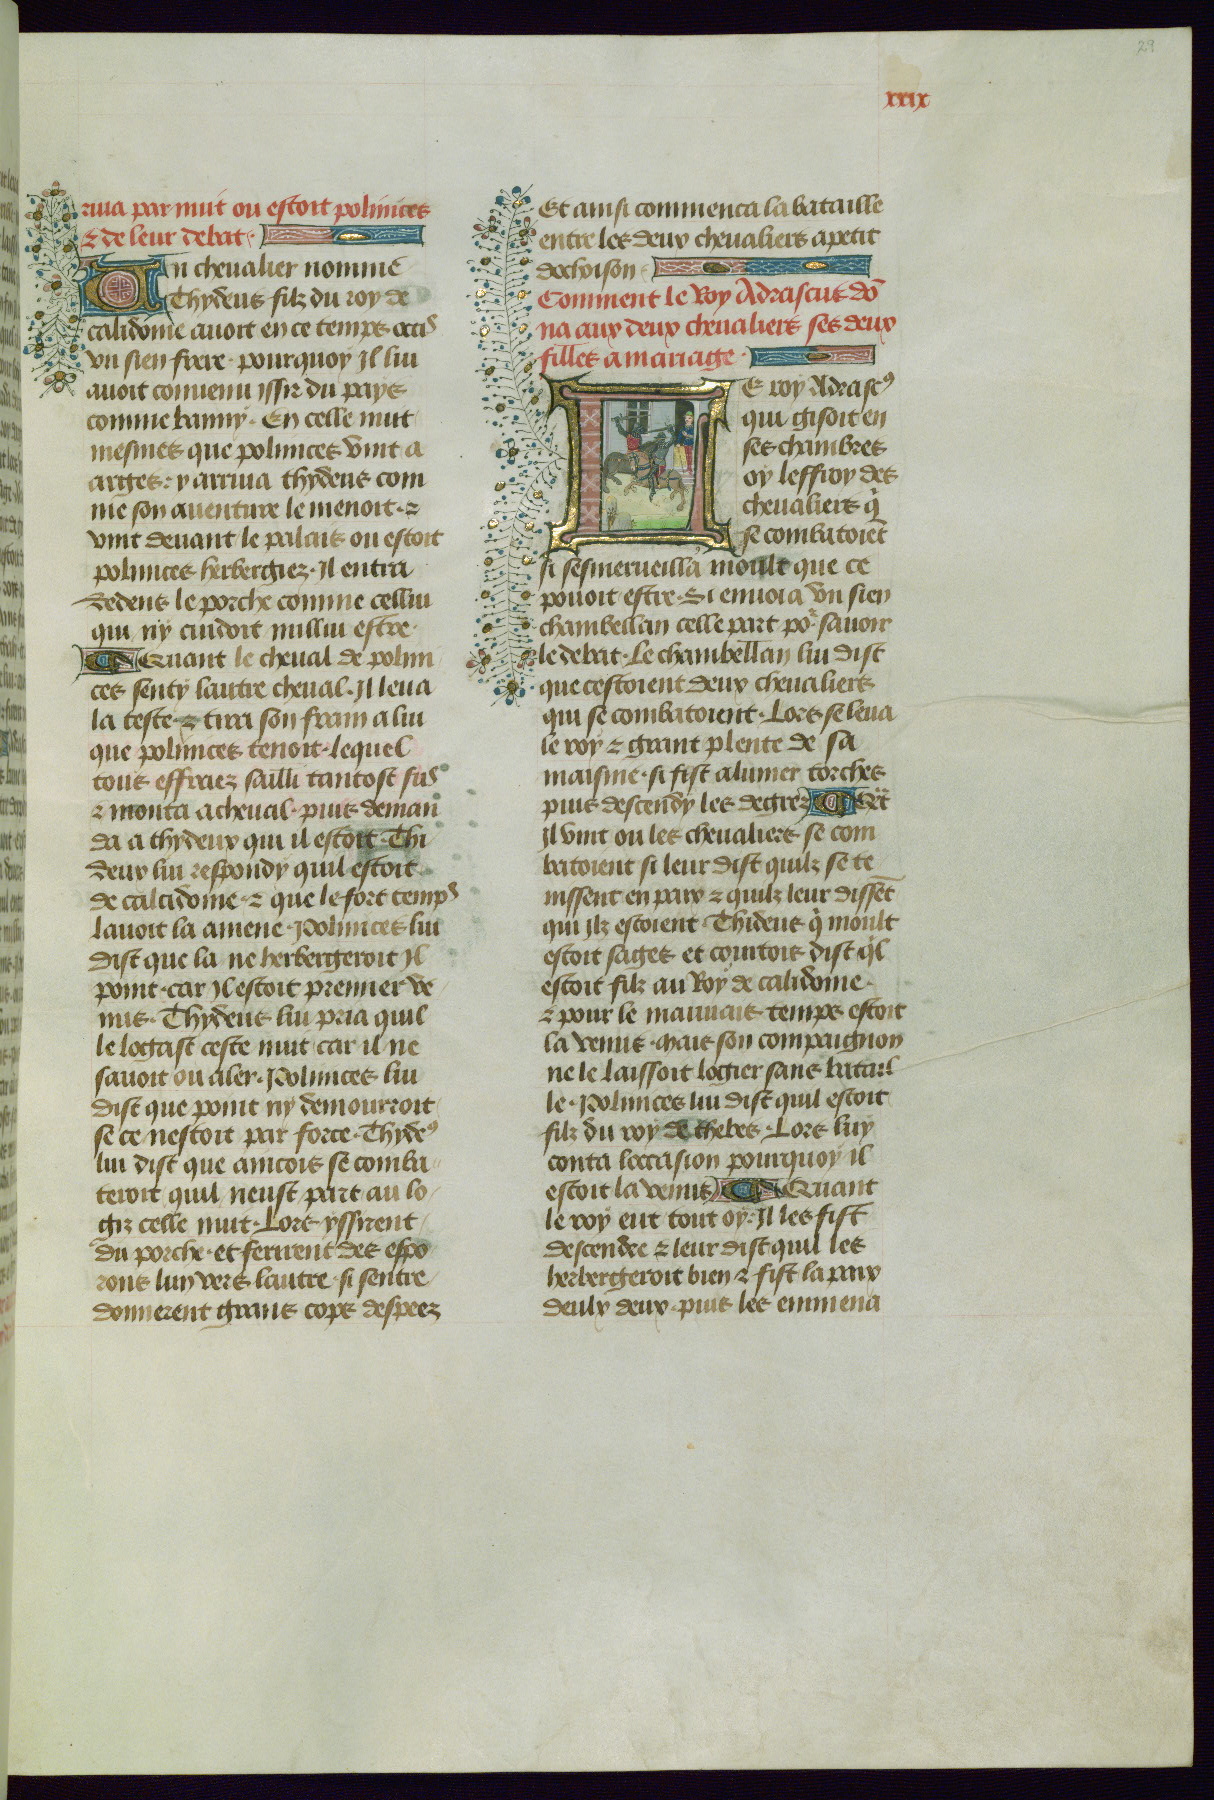 29
xxix
riua par nuit ou estoit polinices
⁊ de leur debat·
Un cheualier nomme
Thydeus filz du roy de
calidome auoit en ce temps occis
vn sien frere· pourquoy Il lui
auoit conuenu yssir du pays
comme banny· En celle nuit
mesmes que polinces vint a
arges: y arriua thydeus com
me son auenture le menoit· ⁊
vint deuant le palais ou estoit
polinces herbergiez· Il entra
dedens le porche comme cellui
qui ny cuidoit nullui estre·
Quant le cheual de polini
ces senty lautre cheual· Il leua
la teste· ⁊ tira son frain a lui
que polinces tenoit· lequel
tous effraez sailli tantost sus
⁊ monta a cheual· puis deman
da a thydeus qui il estoit· Thi
deux lui respondy quil estoit
de calcidome· ⁊ que le fort temps
lauoit la amene· Polinces lui
dist que la ne herbergeroit Il
point· car Il estoit premier ve
nus· Thydeus lui pria quil
le logast ceste nuit car il ne
sauoit ou aler· Polinces lui
dist que point ny demourroit
se ce nestoit par force· Thydeꝰ
lui dist que aincois se comba
teroit quil neust part au lo
giz celle nuit· Lors yssirent
du porche· et ferirent des espo
rons lun vers lautre· si sentre
donnerent grans cops despeez
Et ainsi commenca la bataille
entre les deux cheualiers a petit
dochoison·
Comment le Roy Adrascus dō
na aux deux cheualiers ses deux
filles a mariage·
LE roy Adrascꝰ
qui gisoit en
ses chambres
oy leffroy des
cheualiers q̄
se combatoiēt
si sesmerueilla moult que ce
pouoit estre· Si enuoia vn sien
chambellan celle part po᷑ sauoir
le debat· Le chambellan lui dist
que cestoient deux cheualiers
qui se combatoient· Lors se leua
le roy ⁊ grant plente de sa
maisine· si fist alumer torches
puis descendy les degrez Qāt
Il vint ou les cheualiers se com
batoient si leur dist quilz se te
nissent en paix ⁊ quilz leur dissēt
qui Ilz estoient· Thideus q̄ moult
estoit sages et courtois dist q̄l
estoit filz au Roy de calidome·
⁊ pour le mauuais temps estoit
la venus· mais son compaignon
ne le laissoit logier sans batail
le· Polinces lui dist quil estoit
filz du roy de thebes· Lors luy
conta loccasion pourquoy il
estoit la venus Quant
le roy eut tout oy· Il les fist
descendre ⁊ leur dist quil les
herbergeroit bien ⁊ fist la paix
deulx deux· puis les emmena